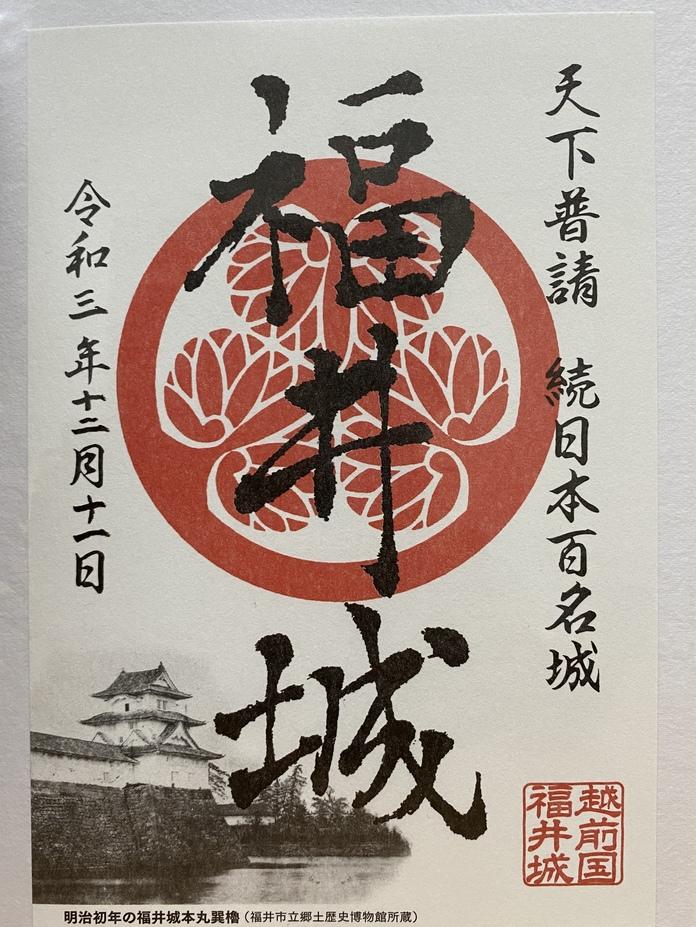 天下普請 続日本百名城
福井城
令和三年十二月十一日
越前国
福井城
明治初年の福井城本丸巽櫓(福井市立郷土歴史博物館所蔵)